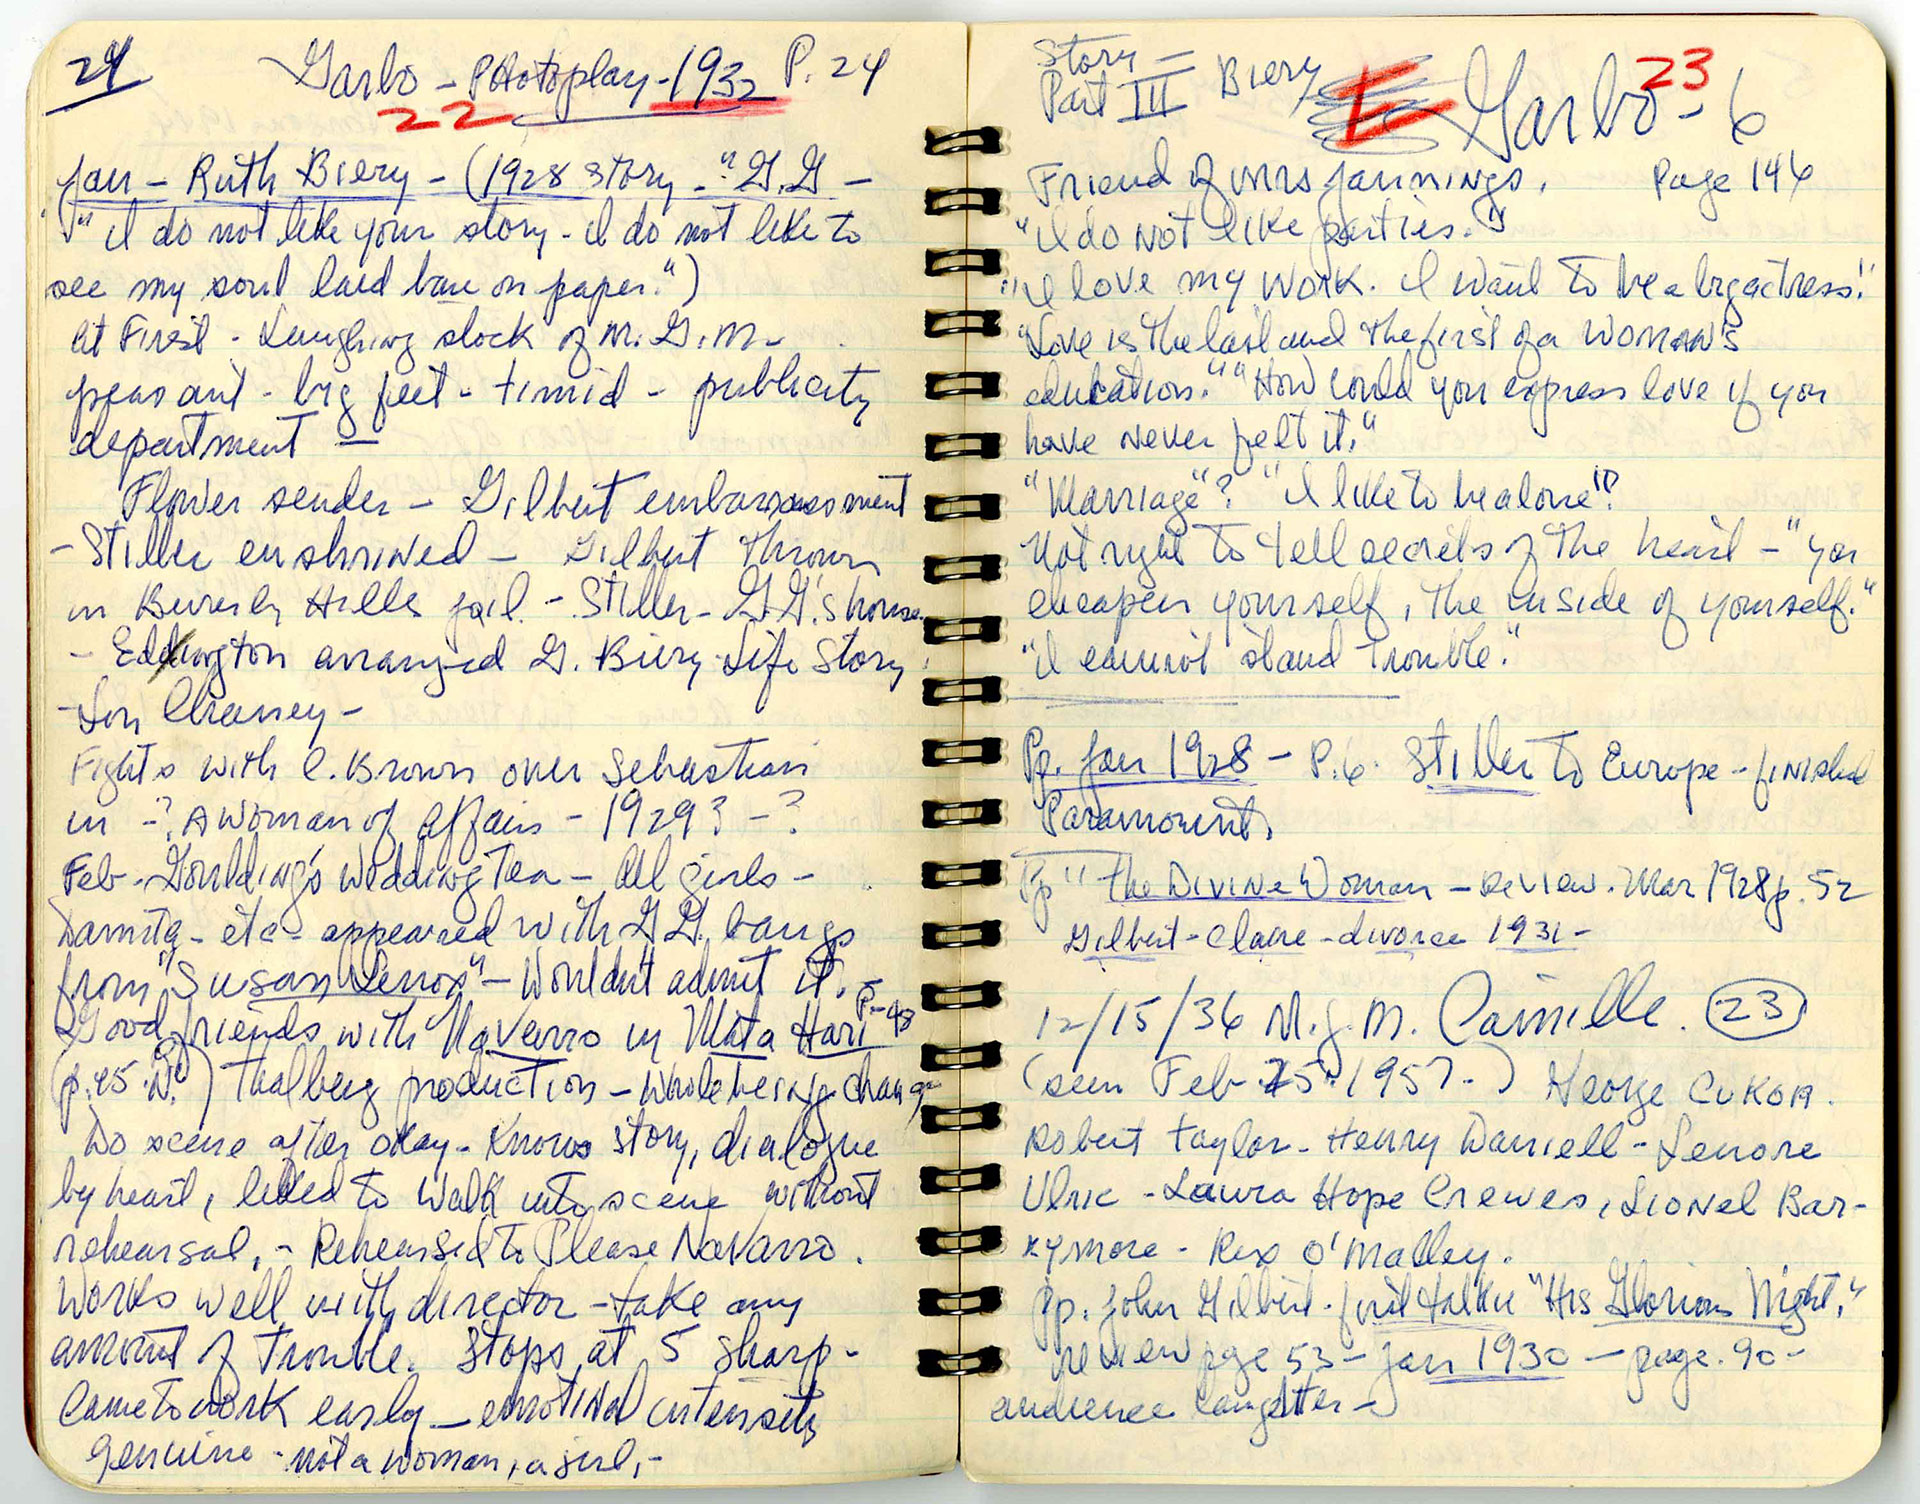 24
Garbo - Photoplay - 1932 P. 24
22
Jan - Ruth Biery - (1928 story - "G.G -
"I do not like your story - I do not like to
see my soul laid bare on paper.")
At First - Laughing stock of M.G.M. -
peasant - big feet - timid - publicity
department -
Flower sender - Gilbert embarrassment
- Stiller enshrined - Gilbert thrown
in Beverly Hills jail. - Stiller - G.G.'s house.
- Eddington arranged G. Biery Life Story.
- Lon Chaney -
Fights with C. Brown over Sebastian
in -? A Woman of Affairs - 1929? - ?
Feb - Goulding's Wedding Tea - All girls -
Damita - etc - appeared with G.G. bangs
from "Susan Lenox" - Wouldn't admit it. -
Good friends with Navarro in Mata Hari P. - 48
(p. 45 ) Thalberg production - Whole being change
Do scene after okay - Knows story, dialogue
by heart, liked to walk into scene without
rehearsal, - Rehearsed to Please Navarro.
Works well with director - take any
amount of trouble. Stops at 5 sharp -
Came to work early - emotional intensity
genuine - not a woman, a girl, -
Story -
Part III Biery Garbo - 6
23
Friend of Mrs Jannings. Page 146
"I do not like parties."
"I love my work. I want to be a big actress!"
"Love is the last and the first of a woman's
education." "How could you express love if you
have never felt it."
"Marriage"? "I like to be alone"?
Not right to tell secrets of the heart - "you
cheapen yourself, the inside of yourself."
"I cannot stand trouble."
Pp. Jan 1928 - P. 6. Stiller to Europe - finished
Paramount.
Pp " The Divine Woman - review. Mar 1928 p. 52
Gilbert - Claire - divorce 1931 -
12/15/36 M.G.M. Camille. 23
(seen Feb 25. 1957 - ) George Cukor.
Robert Taylor - Henry Daniell - Lenore
Ulric - Laura Hope Crewes, Lionel Bar-
rymore - Rex O'Malley.
Pp. John Gilbert - first talkie "His Glorious Night."
review page 53 - Jan 1930 - page. 90 -
audience laughter -